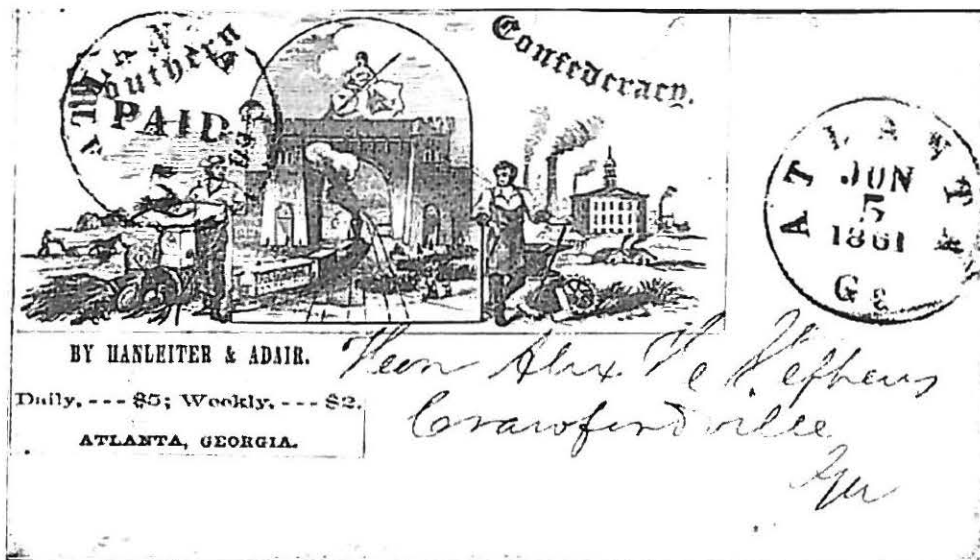 Southern Confederacy.
ATLANTA
PAID
ATLANTA
JUN
5
1861
Ga
BY HANLEITER & ADAIR.
Daily, --- $5; Weekly, --- $2.
ATLANTA, GEORGIA.
Hon Alex. H Stephens
Crawfordville
Ga